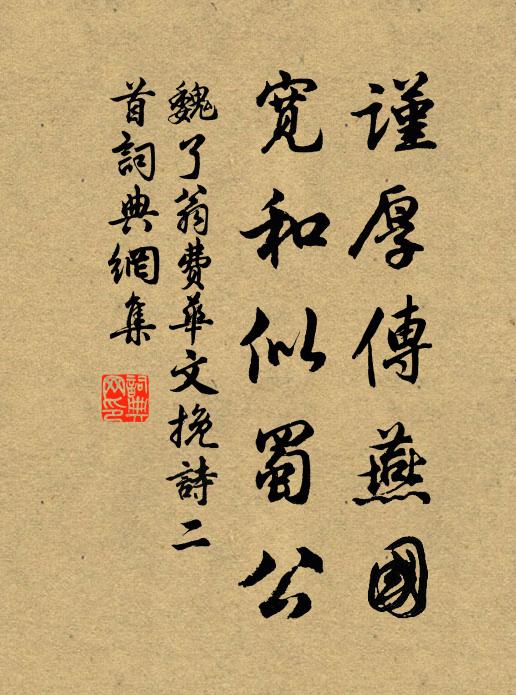 謹厚傳燕國
寬和似蜀公
魏了翁費華文挽詩二
首詞典網集
詞典網印